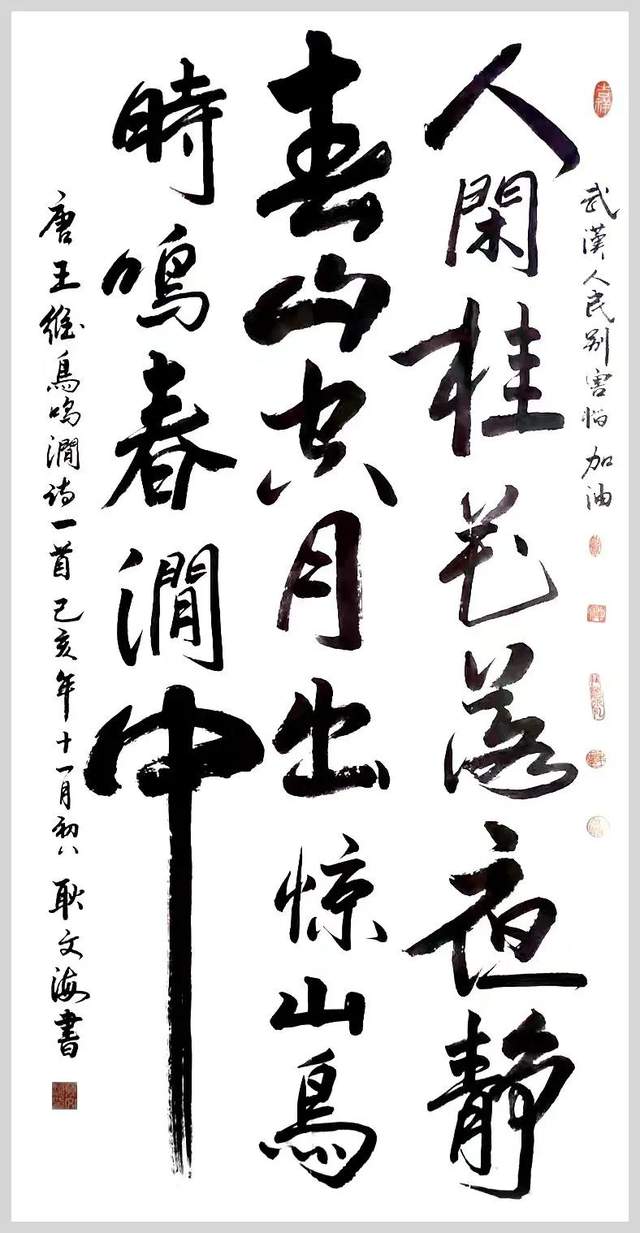 吉祥
武漢人民别害怕 加油
人閑桂花落夜静
春山空月出惊山鳥
時鳴春澗中
唐王維鳥鳴澗诗一首 己亥年十一月初八 耿文海書